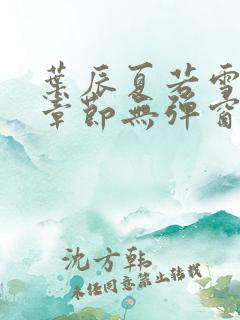 葉辰夏若雪
章節無彈窗
沈方韩
未经同意禁止转载